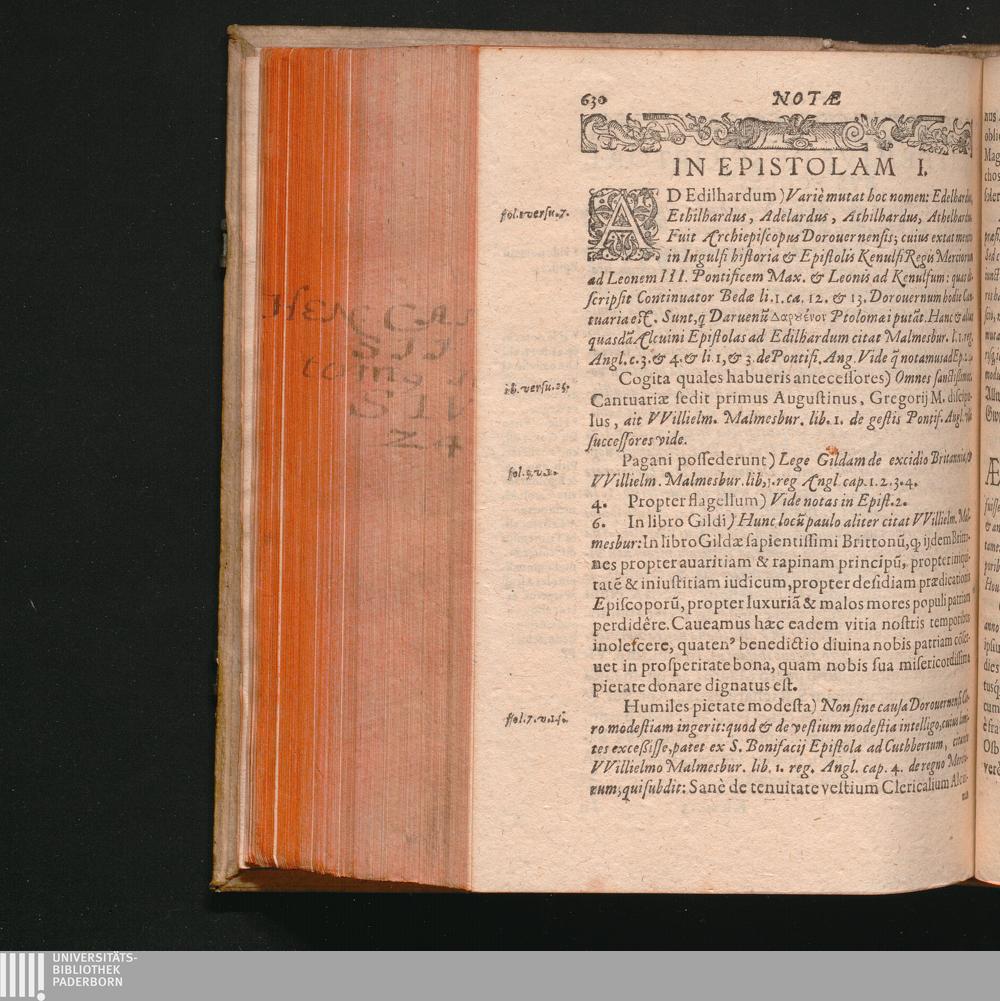 630 NOTÆ
IN EPISTOLAM I.
fol.1 versu.7.
AD Edilhardum) Variè mutat hoc nomen: Edelhardus,
Ethilhardus, Adelardus, Athilhardus, Athelhardus
Fuit Archiepiſcopus Dorouernenſis; cuius extat
in Ingulfi hiſtoria & Epiſtolis Kenulfi Regis Merciorum
ad Leonem III. Pontificem Max. & Leonis ad Kenulfum: quas
ſcripſit Continuator Bedæ li.1. ca. 12. & 13. Dorouernum hodie
tuaria eſt. Sunt, q̃ Daruenũ Δαρουένον Ptolomæi putãt. Hanc & alias
quasdã Alcuini Epiſtolas ad Edilhardum citat Malmesbur. l.1.reg.
Angl. c.3. & 4. & li 1, & 3. de Pontifi. Ang. Vide q̃ notamus ad Ep.
ib. verſu.25.
Cogita quales habueris anteceſſores) Omnes ſanctiſſimos.
Cantuariæ ſedit primus Auguſtinus, Gregorij M. diſcipu-
lus, ait VVillielm. Malmesbur. lib. 1. de geſtis Pontif. Angl.
ſucceſſores vide.
fol.5.v.1.
Pagani poſſederunt) Lege Gildam de excidio Britanniæ, &
VVillielm. Malmesbur. lib, 1. reg Angl cap. 1. 2. 3. 4.
4. Propter flagellum) Vide notas in Epiſt. 2.
6. In libro Gildi) Hunc locũ paulo aliter citat VVillielm. Mal-
mesbur: In libro Gildæ ſapientiſſimi Brittonũ, q, ijdem Britto-
nes propter auaritiam & rapinam principũ, propter iniqui-
tatẽ & iniuſtitiam iudicum, propter deſidiam prædicationis
Epiſcoporũ, propter luxuriã & malos mores populi patriam
perdidêre. Caueamus hæc eadem vitia noſtris temporibus
inoleſcere, quaten⁹ benedictio diuina nobis patriam cõſer-
uet in proſperitate bona, quam nobis ſua miſericordiſſima
pietate donare dignatus eſt.
fol.7.
Humiles pietate modeſta) Non ſine cauſa Dorouernenſi
ro modeſtiam ingerit: quod & de veſtium modeſtia intelligo, cuius limi-
tes exceſſiſſe, patet ex S. Bonifacij Epiſtola ad Cuthbertum, citante
VVillielmo Malmesbur. lib. 1. reg. Angl. cap. 4. de regno Mercio-
rum; qui ſubdit: Sanè de tenuitate veſtium Clericalium Alcu-
UNIVERSITÄTS-
BIBLIOTHEK
PADERBORN